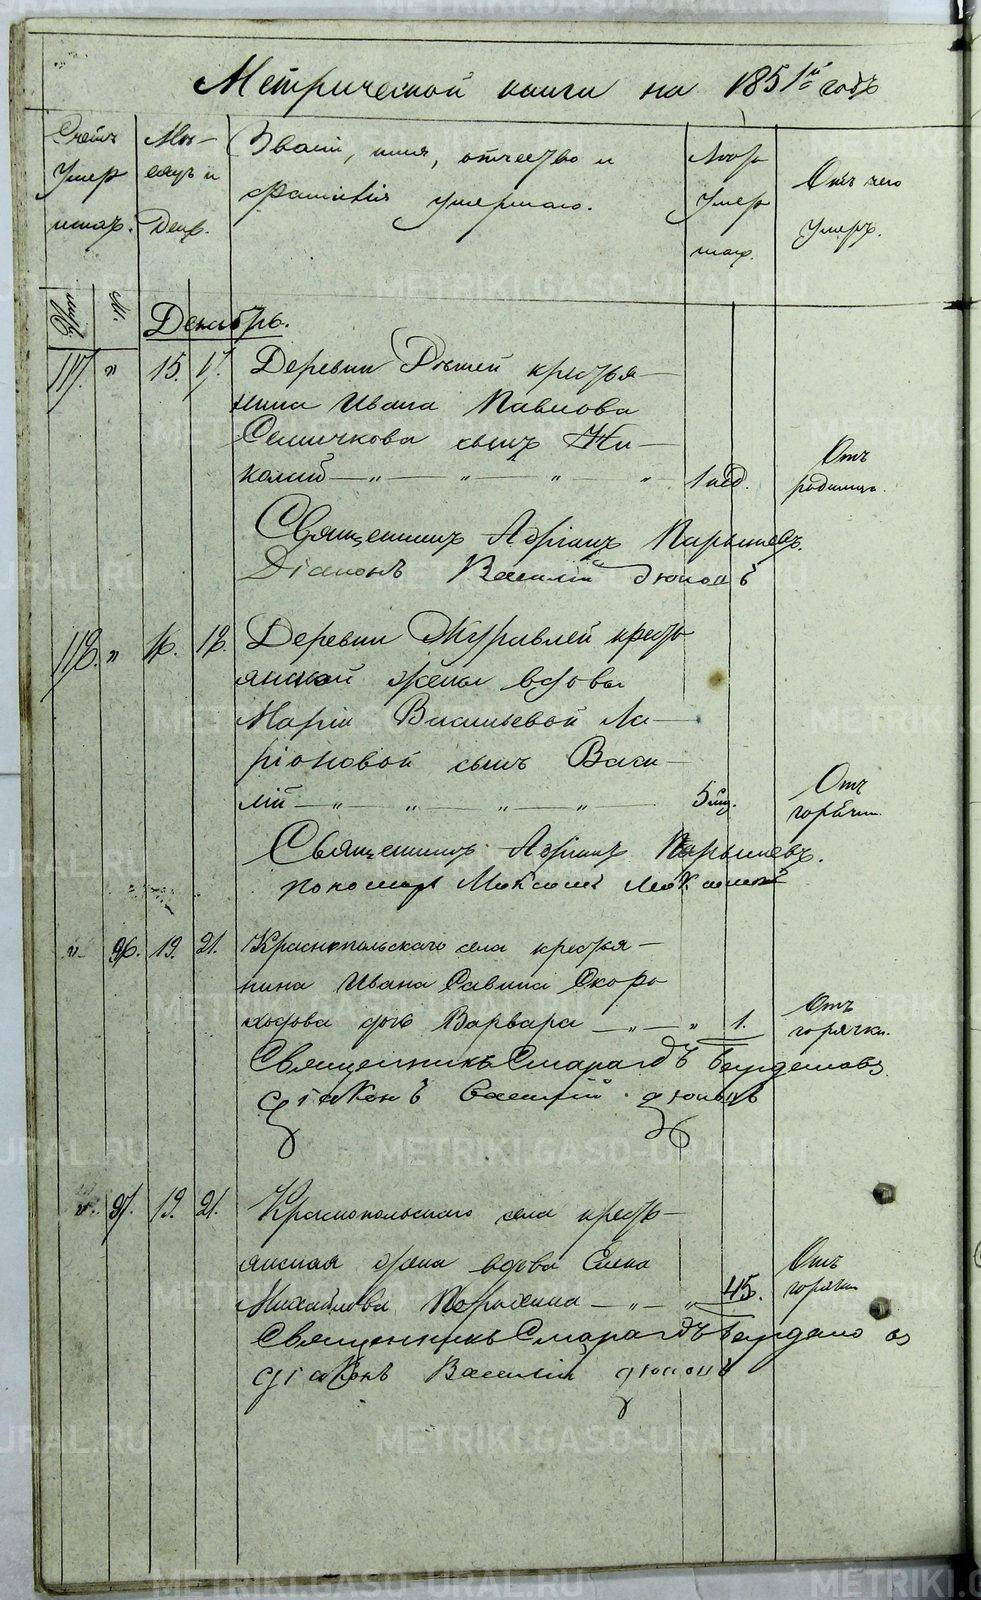 Метрической книги на 1851й годъ
Счетъ умершихъ.
Мѣсяцъ и День.
Званіе, имя, отчество и
фамилія умершаго.
Лѣта умершаго.
Отъ чего
умеръ.
Декабрь.
117. " 15. 17. Деревни крестья-
нина Ивана Павлова
Семичкова сынъ Ни-
колай — " — " — " — " 1 нед. Отъ родимца.
Священникъ Адріанъ
Діаконъ Василій Дюковъ
118. " 16. 18. Деревни Журавлей кресть
янской жены вдовы
Маріи Васильевой Ла-
ріоновой сынъ Васи-
лій — " — " — " — " — 5 мѣс. Отъ горячки.
Священникъ Адріанъ
пономарь Максимъ
" 96. 19. 21. Краснопольскаго села крестья-
нина Ивана Савина Скоро
ходова дочь Варвара — " — " 1. Отъ горячки.
Священникъ Смарагдъ
діаконъ Василій Дюковъ
" 97. 19. 21. Краснопольскаго села кресть-
янская жена вдова Елена
Михайлова — " — " 45. Отъ горячки
Священникъ Смарагдъ
діаконъ Василій Дюковъ
METRIKI.GASO-URAL.RU